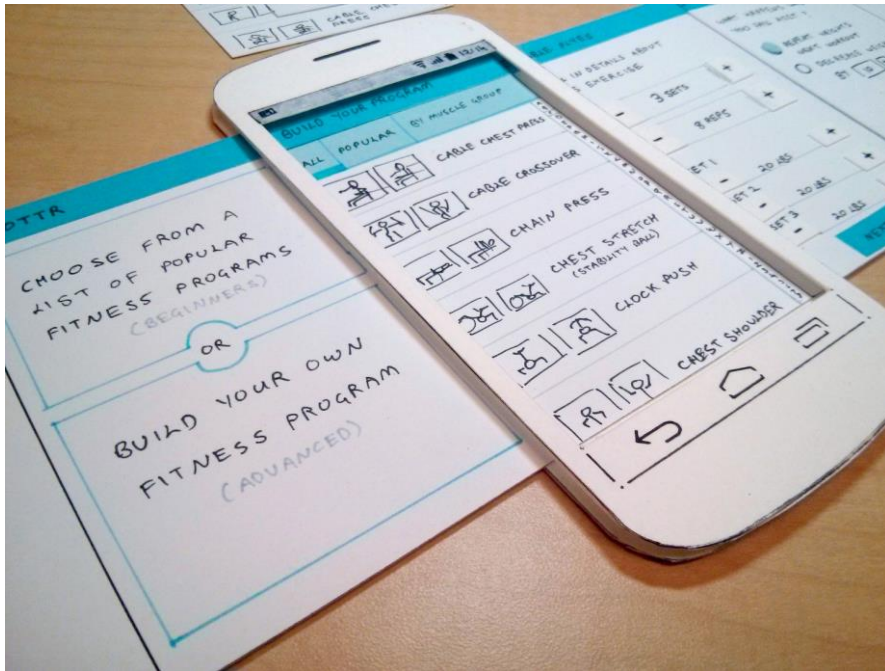 CABLE CHEST
PRESS
OTTR
CHOOSE FROM A
LIST OF POPULAR
FITNESS PROGRAMS
(BEGINNERS)
OR
BUILD YOUR OWN
FITNESS PROGRAM
(ADVANCED)
12:14
BUILD YOUR PROGRAM
ALL POPULAR BY MUSCLE GROUP
CABLE CHEST PRESS
CABLE CROSSOVER
CHAIN PRESS
CHEST STRETCH
(STABILITY BALL)
CLOCK PUSH
CHEST SHOULDER
IN DETAILS ABOUT
EXERCISE
- 3 SETS +
- 8 REPS +
SET 1 - 20 LBS +
SET 2 - 20 LBS +
SET 3 - 20 LBS
WHAT HAPPENS
REPEAT WEIGHTS
NEXT WORKOUT
DECREASE
BY